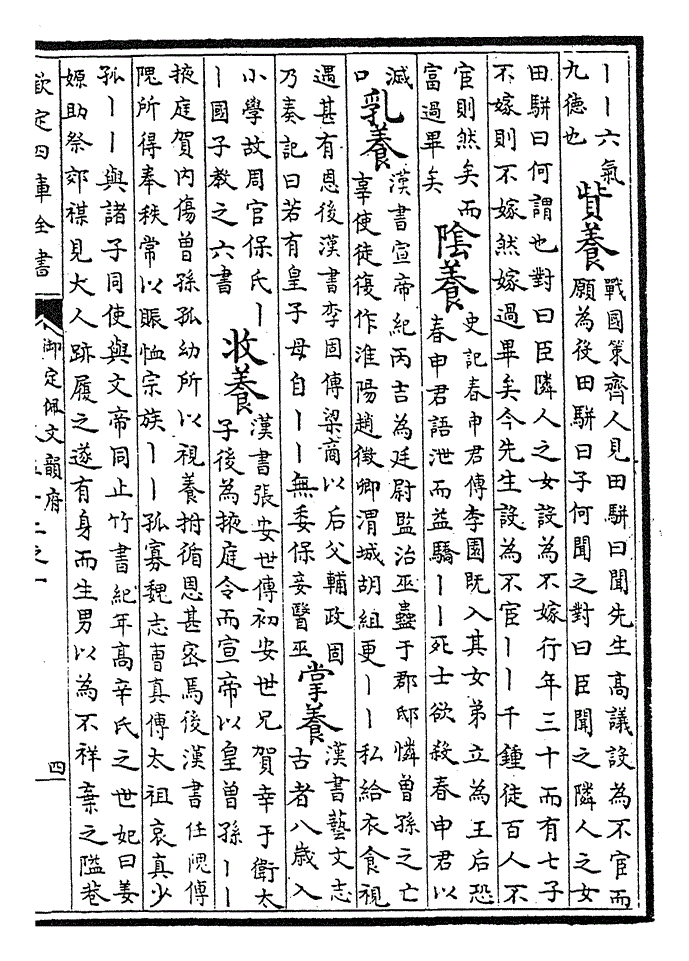 ——六氣
九德也
貲養
戰國策齊人見田駢曰聞先生高議設為不宦而
願為役田駢曰子何聞之對曰臣聞之隣人之女
田駢曰何謂也對曰臣隣人之女設為不嫁行年三十而有七子
不嫁則不嫁然嫁過畢矣今先生設為不宦——千鍾徒百人不
宦則然矣而
富過畢矣
陰養
史記春申君傳李園既入其女弟立為王后恐
春申君語泄而益驕——死士欲殺春申君以
滅
口
乳養
漢書宣帝紀丙吉為廷尉監治巫蠱于郡邸憐曾孫之亡
辜使徒復作淮陽趙徵卿渭城胡組更——私給衣食視
遇甚有恩後漢書李固傳梁商以后父輔政固
乃奏記曰若有皇子母自——無委保妾醫巫
掌養
漢書藝文志
古者八歲入
小學故周官保氏—
—國子教之六書
收養
漢書張安世傳初安世兄賀幸于衛太
子後為掖庭令而宣帝以皇曾孫——
掖庭賀内傷曾孫孤幼所以視養拊循恩甚密焉後漢書任隗傳
隗所得奉秩常以賑恤宗族——孤寡魏志曹真傳太祖哀真少
孤——與諸子同使與文帝同止竹書紀年高辛氏之世妃曰姜
嫄助祭郊禖見大人跡履之遂有身而生男以為不祥棄之隘巷
欽定四庫全書
御定佩文韻府
四